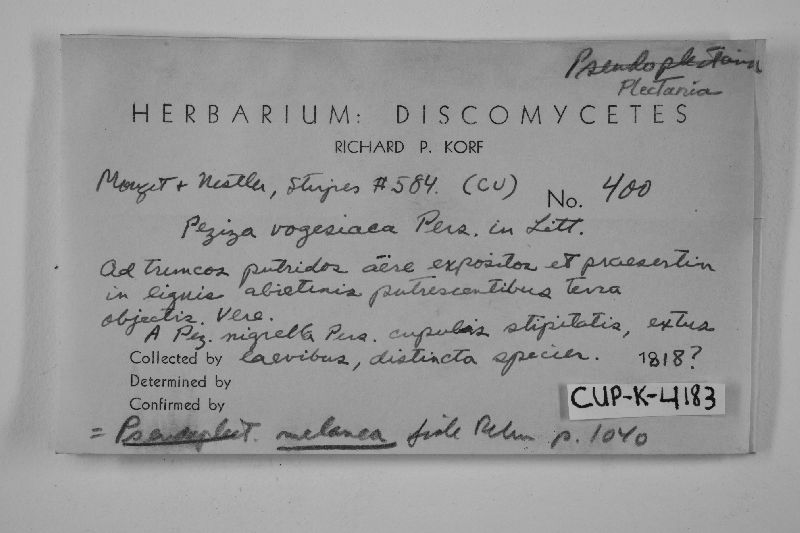 Pseudoplectania
Plectania
HERBARIUM: DISCOMYCETES
RICHARD P. KORF
Mougt + Nestler, Stirpes #584. (CU) No. 400
Peziza vogesiaca Pers. in Litt.
Ad truncos putridos aëre expositos et praesertim
in lignis abietinis putrescentibus terra
objectis. Vere.
A Pez. nigrella Pers. cupulis stipitatis, extus
Collected by laevibus, distincta species. 1818?
Determined by
Confirmed by
CUP-K-4183
= Pseudoplect. melanea fide Rehm p. 1040